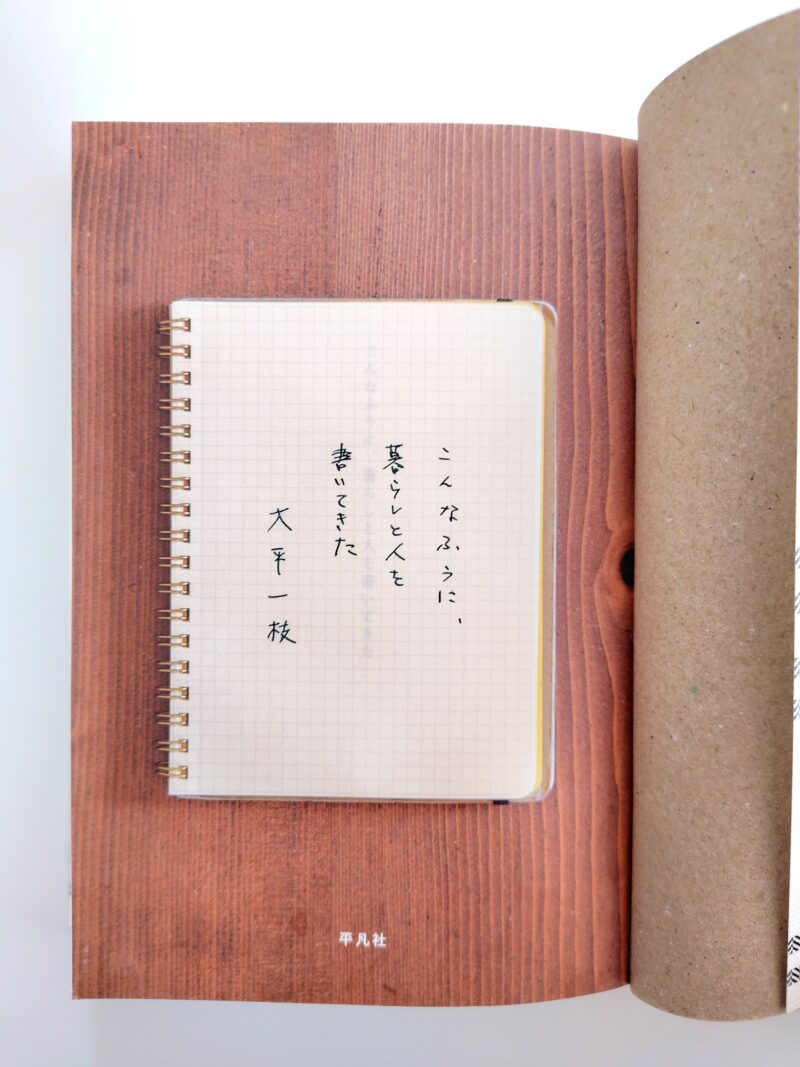 こんなふうに、
暮らしと人を
書いてきた
大平一枝
平凡社